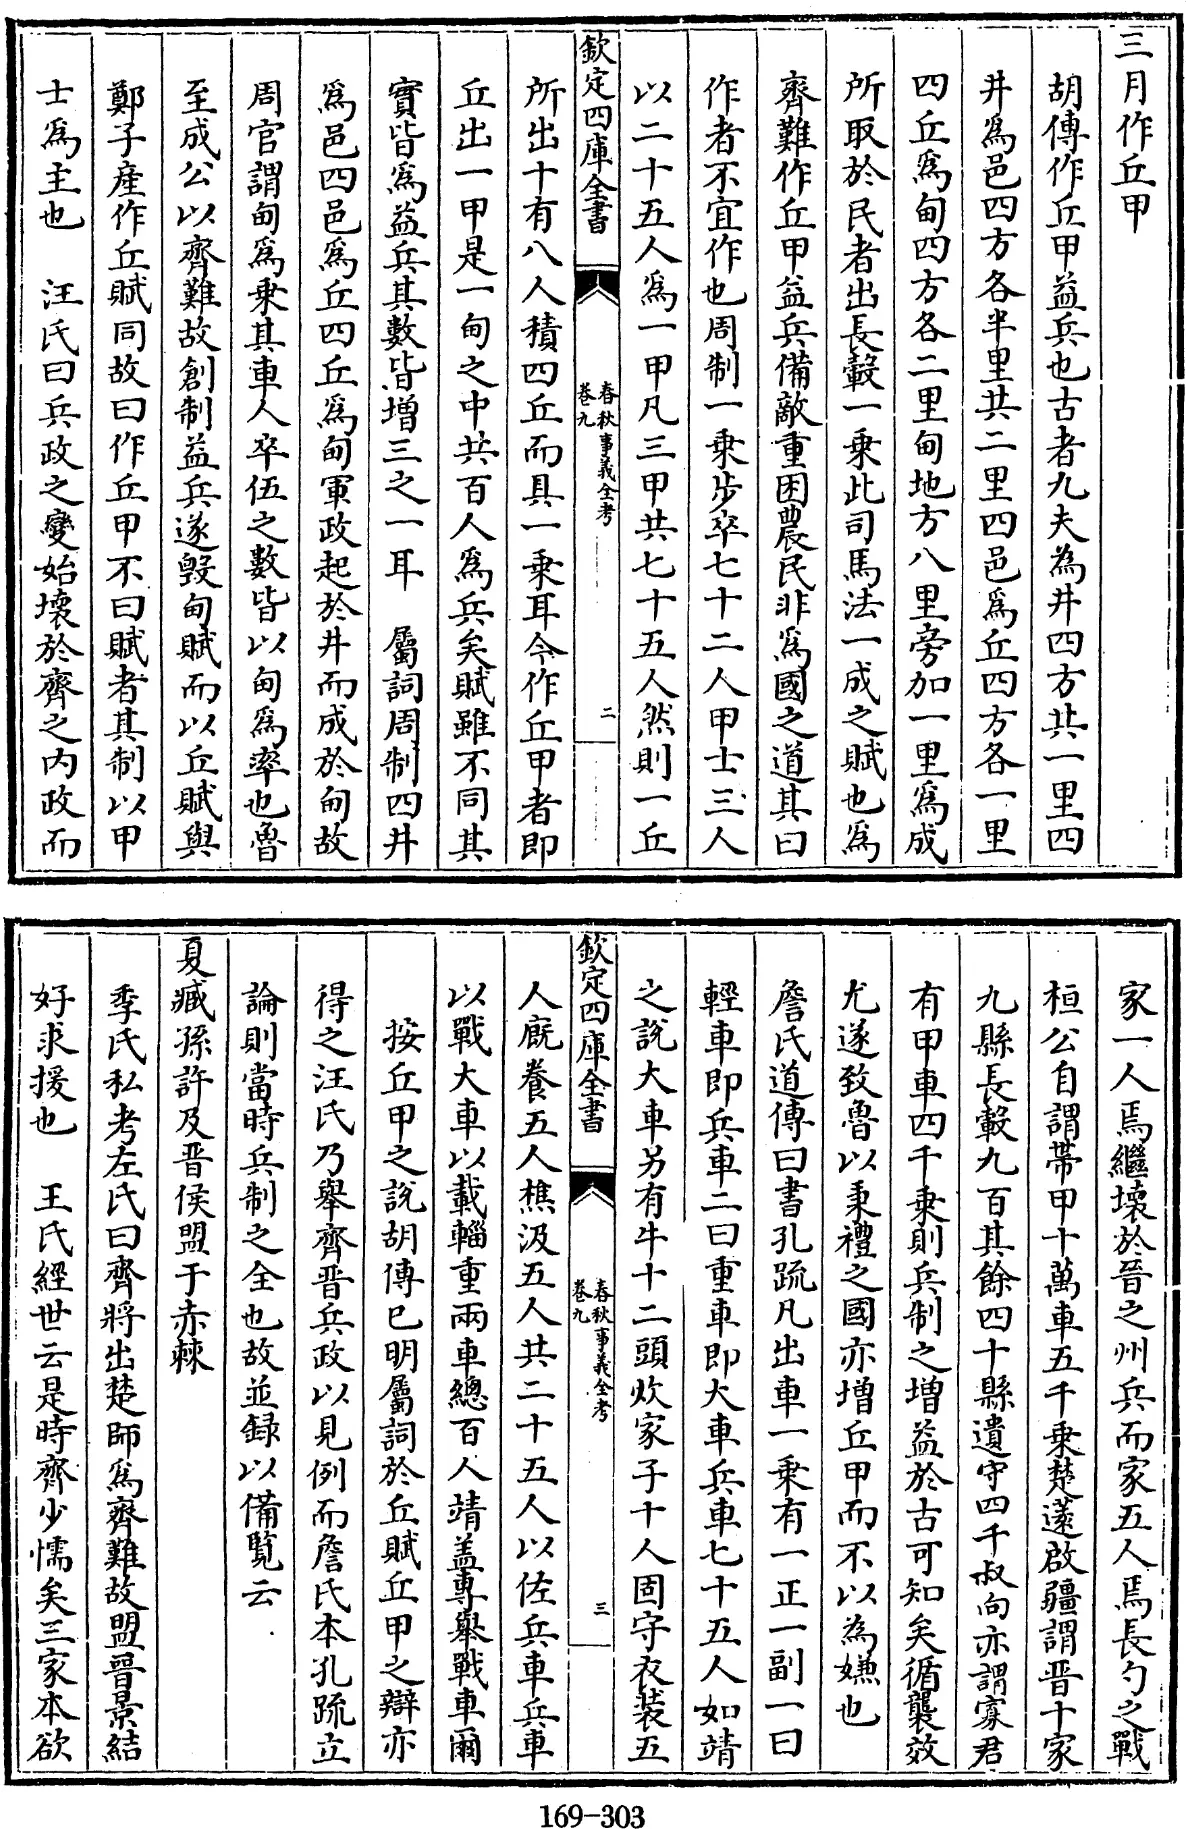 三月作丘甲
胡傳作丘甲益兵也古者九夫為井四方共一里四
井爲邑四方各半里共二里四邑爲丘四方各一里
四丘爲甸四方各二里甸地方八里旁加一里爲成
所取於民者出長轂一乘此司馬法一成之賦也爲
齊難作丘甲益兵備敵重困農民非爲國之道其曰
作者不宜作也周制一乘步卒七十二人甲士三人
以二十五人爲一甲凡三甲共七十五人然則一丘
欽定四庫全書
春秋事義全考
卷九
二
所出十有八人積四丘而具一乘耳今作丘甲者即
丘出一甲是一甸之中共百人爲兵矣賦雖不同其
實皆爲益兵其數皆增三之一耳　屬詞周制四井
爲邑四邑爲丘四丘爲甸軍政起於井而成於甸故
周官謂甸爲乘其車人卒伍之數皆以甸爲率也魯
至成公以齊難故創制益兵遂毀甸賦而以丘賦與
鄭子産作丘賦同故曰作丘甲不曰賦者其制以甲
士爲主也　汪氏曰兵政之變始壞於齊之内政而
家一人焉繼壞於晉之州兵而家五人焉長勺之戰
桓公自謂帶甲十萬車五千乘楚薳啟疆謂晋十家
九縣長轂九百其餘四十縣遺守四千叔向亦謂寡君
有甲車四千乘則兵制之增益於古可知矣循襲效
尤遂致魯以秉禮之國亦増丘甲而不以為嫌也
詹氏道傳曰書孔疏凡出車一乘有一正一副一曰
輕車即兵車二曰重車即大車兵車七十五人如靖
之説大車另有牛十二頭炊家子十人固守衣装五
欽定四庫全書
春秋事義全考
卷九
三
人廐養五人樵汲五人共二十五人以佐兵車兵車
以戰大車以載輜重兩車總百人靖盖專舉戰車爾
按丘甲之說胡傳已明屬詞於丘賦丘甲之辯亦
得之汪氏乃舉齊晋兵政以見例而詹氏本孔疏立
論則當時兵制之全也故並録以備覧云
夏臧孫許及晋侯盟于赤棘
季氏私考左氏曰齊將出楚師爲齊難故盟晉景結
好求援也　王氏經世云是時齊少懦矣三家本欲
169-303